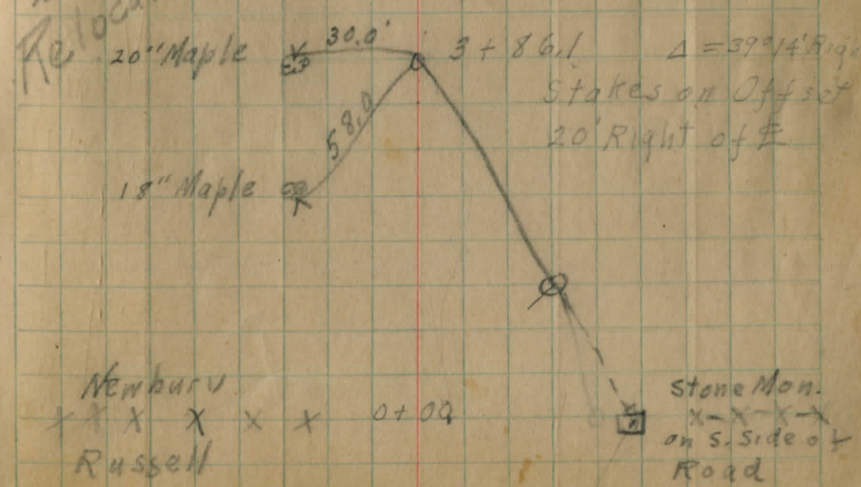 Reloca
20" Maple 30.0' 3+86.1 Δ = 39°14' Righ
Stakes on Offset
58.0 20' Right of ℄
18" Maple
Newbury
0+00
Russell
Stone Mon.
on S. Side of
Road